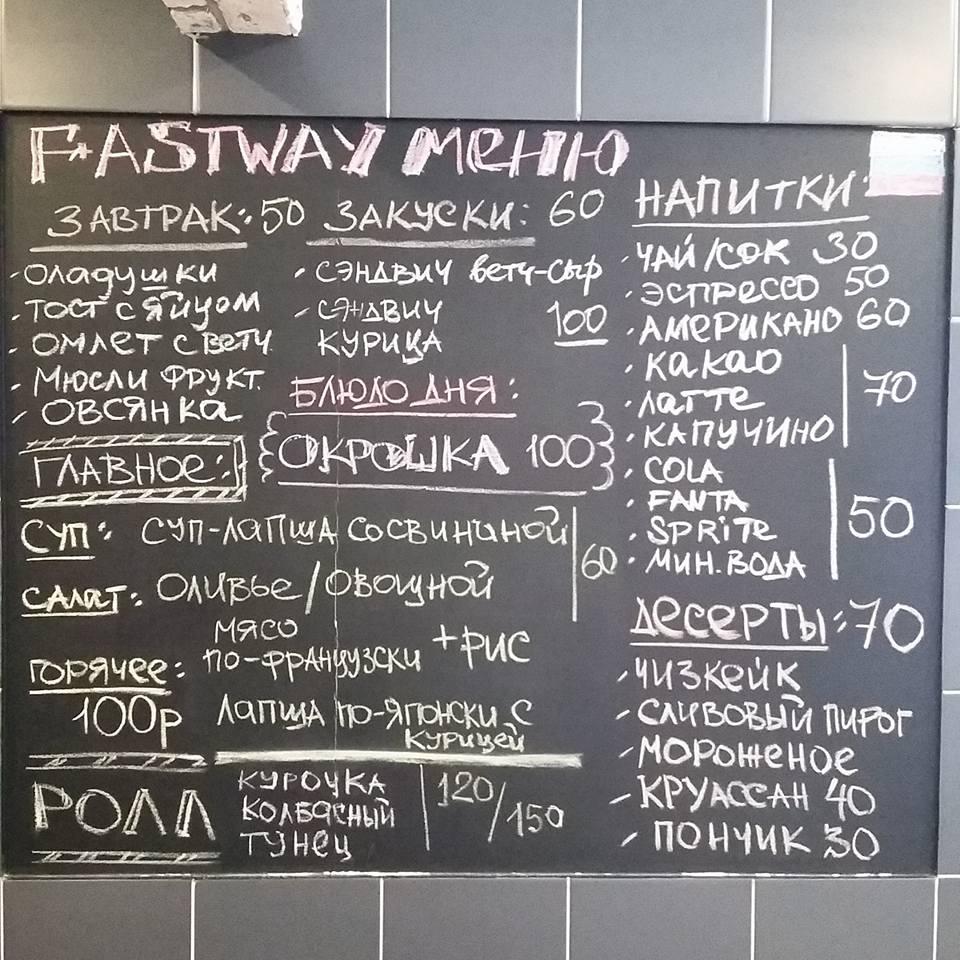 FASTWAY МЕНЮ
ЗАВТРАК: 50
ОЛАДУШКИ
ТОСТ С ЯЙЦОМ
ОМЛЕТ С ВЕТЧ
МЮСЛИ ФРУКТ.
ОВСЯНКА
ЗАКУСКИ: 60
СЭНДВИЧ ВЕТЧ-СЫР
СЭНДВИЧ 100
КУРИЦА
БЛЮДО ДНЯ:
ОКРОШКА 100
ГЛАВНОЕ:
СУП: СУП-ЛАПША СО СВИНИНОЙ
60
САЛАТ: ОЛИВЬЕ/ОВОЩНОЙ
МЯСО
ГОРЯЧЕЕ: ПО-ФРАНЦУЗСКИ +РИС
100Р ЛАПША ПО-ЯПОНСКИ С
КУРИЦЕЙ
РОЛЛ
КУРОЧКА
КОЛБАСНЫЙ
ТУНЕЦ
120/150
НАПИТКИ:
ЧАЙ/СОК 30
ЭСПРЕССО 50
АМЕРИКАНО 60
КАКАО
ЛАТТЕ 70
КАПУЧИНО
COLA
FANTA
SPRITE 50
МИН.ВОДА
ДЕСЕРТЫ: 70
ЧИЗКЕЙК
СЛИВОВЫЙ ПИРОГ
МОРОЖЕНОЕ
КРУАССАН 40
ПОНЧИК 30